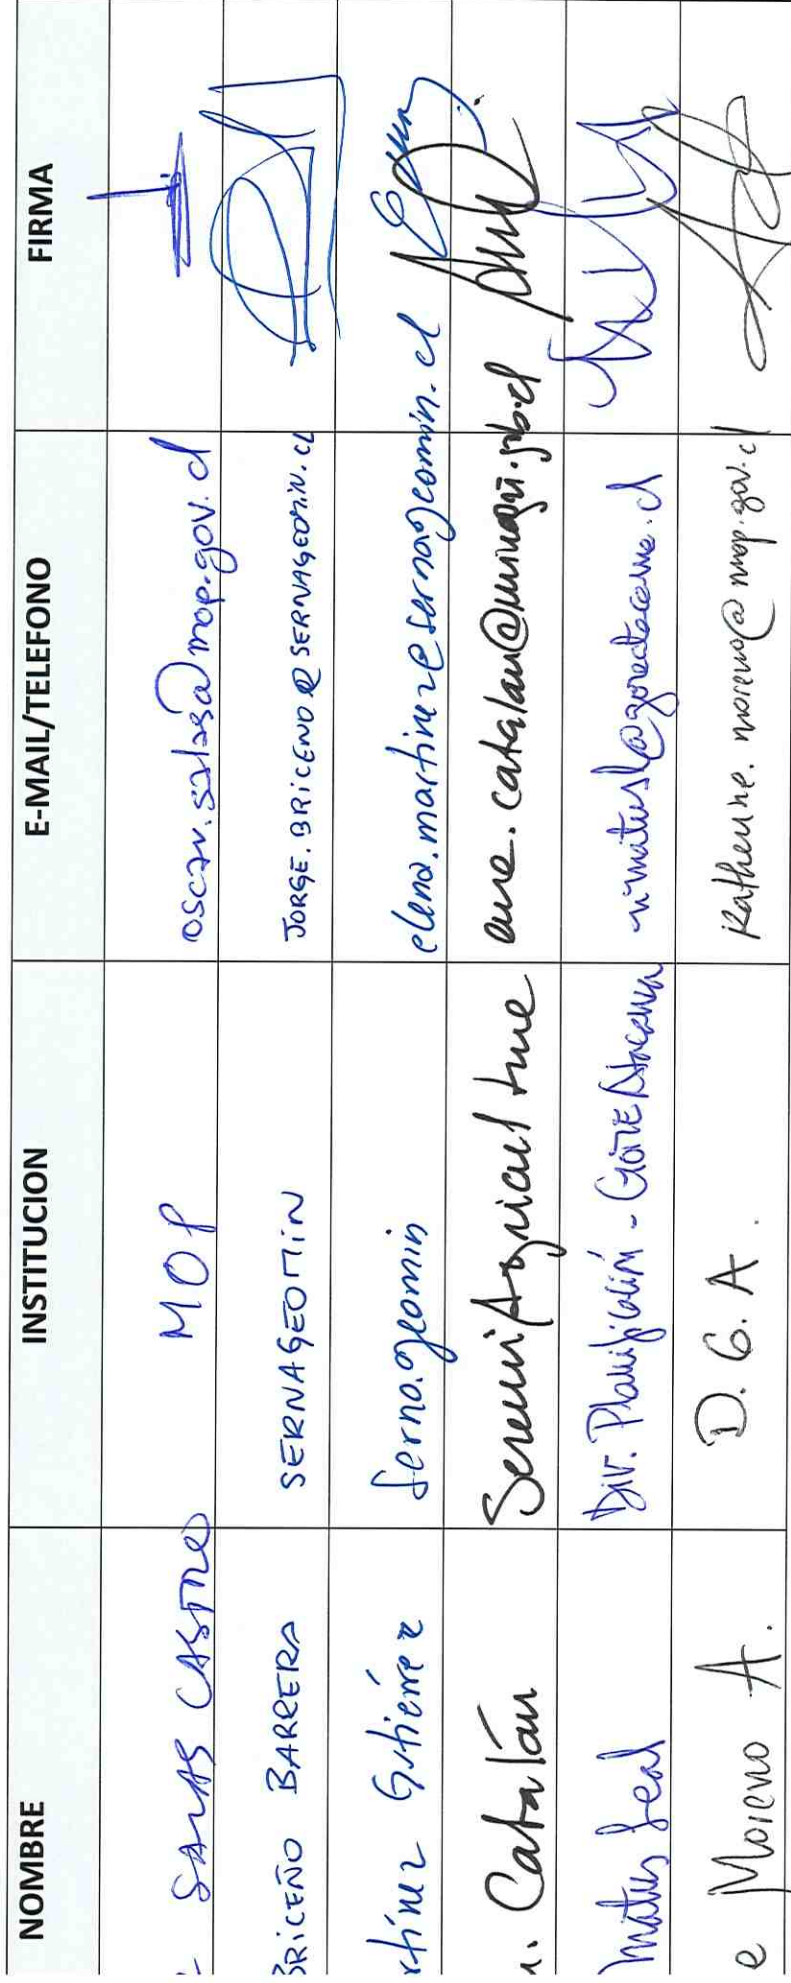 NOMBRE INSTITUCION E-MAIL/TELEFONO FIRMA
SALAS CASTRO MOP oscar.salas@mop.gov.cl
BRICEÑO BARRERA SERNAGEOMIN JORGE.BRICENO@SERNAGEOMIN.CL
rtínez Gutiérrez Sernageomin elena.martinez@sernageomin.cl
Catalán Seremi Agricultura catalan@minagri.gob.cl
Matus Leal Div. Planificación - GORE Atacama nmatusl@goreatacama.cl
e Moreno A. D. G. A. Katherine.moreno@mop.gov.cl